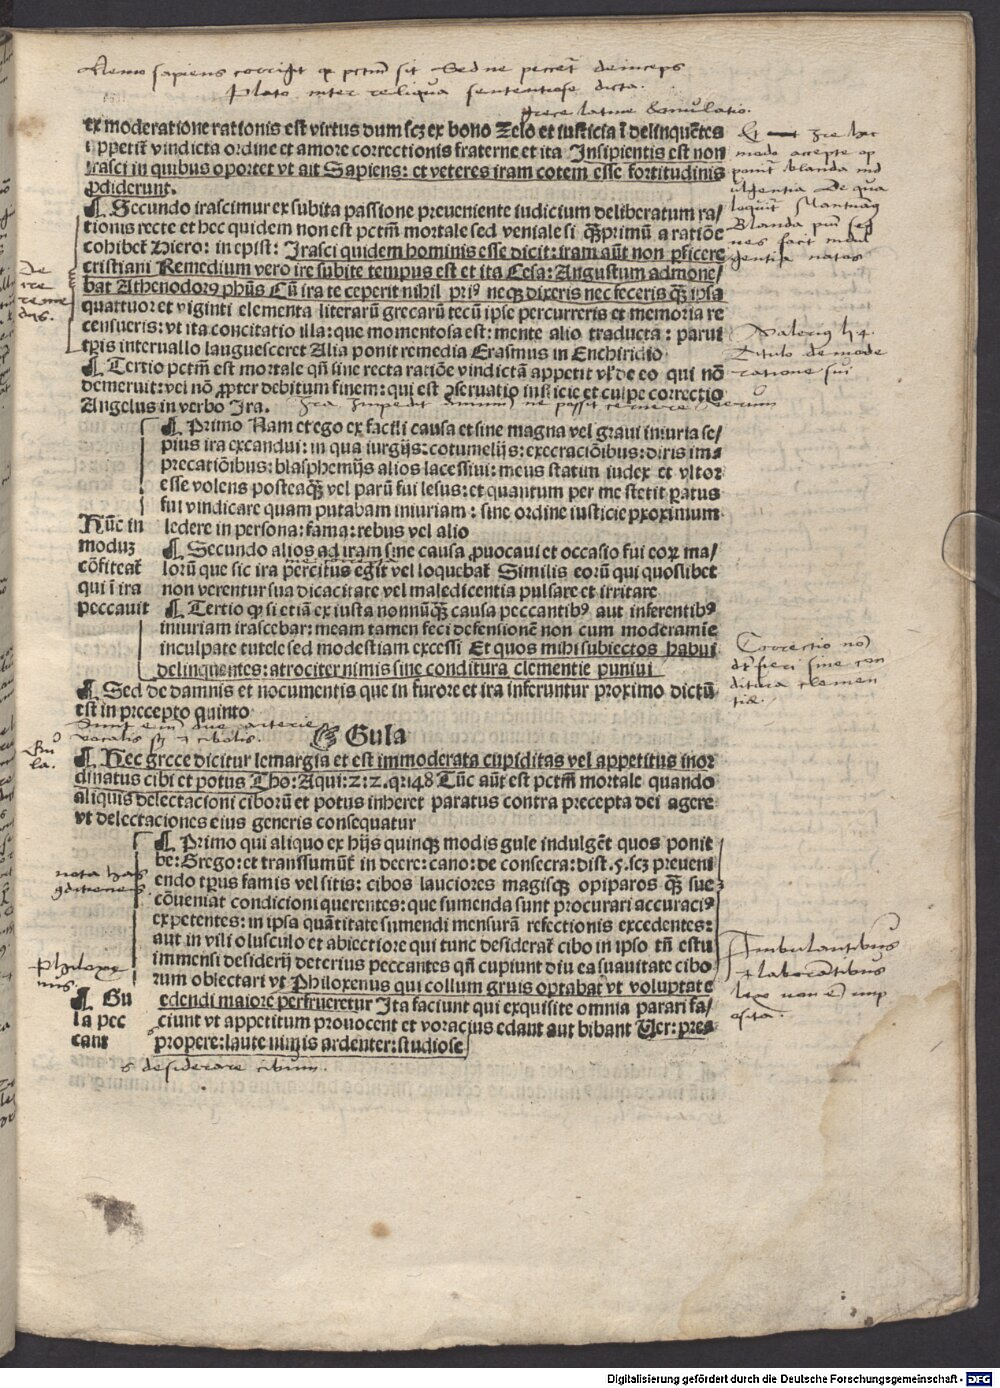 Nemo sapiens corrigit q pctm sit Sed ne peccet deinceps
Plato inter reliqua sententiose dicta.
grece latine Aemulatio.
ex moderatione rationis est virtus dum scz ex bono Zelo et iusticia ī delinquētes
appetit vindicta ordine et amore correctionis fraterne et ita Insipientis est non
irasci in quibus oportet vt ait Sapiens: et veteres iram cotem esse fortitudinis
ꝓdiderunt.
¶ Secundo irascimur ex subita passione preueniente iudicium deliberatum ra/
tionis recte et hec quidem non est pctm̄ mortale sed veniale si q̄ꝫprimū a ratiōe
cohibet̄ Hiero: in epist: Irasci quidem hominis esse dicit: iram aūt non ꝑficere
cristiani Remedium vero ire subite tempus est et ita Cesa: Augustum admone/
bat Athenodorꝰ phūs Cū ira te ceperit nihil priꝰ neqꝫ dixeris nec feceris q̄ꝫ ipsa
quattuor et viginti elementa literarū grecarū tecū ipse percurreris et memoria re
censueris: vt ita concitatio illa: que momentosa est: mente alio traducta: parui
tp̄is interuallo languesceret Alia ponit remedia Erasmus in Enchiridio
De
ire
reme
dijs.
¶ Tertio pctm̄ est mortale qn̄ sine recta ratiōe vindictā appetit vl' de eo qui nō
demeruit: vel nō ꝓpter debitum finem: qui est ꝯseruatio iusticie et culpe correctio
Angelus in verbo Ira. Ira impedit animum ne possit cernere verum
Valeriꝰ li 4.
Titulo de mode
ratione sui
¶ Primo Nam et ego ex facili causa et sine magna vel graui iniuria se/
pius ira excandui: in qua iurgijs: cōtumelijs: execraciōibus: diris im/
precatiōibus: blasphemijs alios lacessiui: meus statim iudex et vltor
esse volens posteaq̄ꝫ vel parū fui lesus: et quantum per me stetit paratus
fui vindicare quam putabam iniuriam: sine ordine iusticie proximum
Hūc in ledere in persona: fama: rebus vel alio
moduꝫ ¶ Secundo alios ad iram sine causa ꝓuocaui et occasio fui eoꝝ ma/
cōfiteat̄ lorū que sic ira percitus egit vel loquebat̄ Similis eorū qui quoslibet
qui ī ira non verentur sua dicacitate vel maledicentia pulsare et irritare
peccauit ¶ Tertio ꝙ si etiā ex iusta nonnūq̄ꝫ causa peccantibꝰ aut inferentibꝰ
iniuriam irascebar: meam tamen feci defensionē non cum moderamīe
inculpate tutele sed modestiam excessi Et quos mihi subiectos habui
delinquentes: atrociter nimis sine conditura clementie puniui
Correctio nō
dꝫ fieri sine con
ditura clemen
tiæ.
¶ Sed de damnis et nocumentis que in furore et ira inferuntur proximo dictū
est in precepto quinto
Sunt eim due arterie
vocalis et cibalis.
Gula
Gu
la.
¶ Hec grece dicitur lemargia et est immoderata cupiditas vel appetitus inor
dinatus cibi et potus Tho: Aqui: 2: 2. q: 148 Tūc aūt est pctm̄ mortale quando
aliquis delectacioni ciborū et potus inheret paratus contra precepta dei agere
vt delectaciones eius generis consequatur
¶ Primo qui aliquo ex hijs quinqꝫ modis gule indulgēt quos ponit
be: Grego: et transsumūt̄ in decre: cano: de consecra: dist. 5. scꝫ preueni
endo tp̄us famis vel sitis: cibos lauciores magisqꝫ opiparos q̄ꝫ sue
cōueniat condicioni querentes: que sumenda sunt procurari accuraciꝰ
expetentes: in ipsa quātitate sumendi mensurā refectionis excedentes:
aut in vili olusculo et abiectiore qui tunc desiderat̄ cibo in ipso tn̄ estu
immensi desiderij deterius peccantes qn̄ cupiunt diu ea suauitate cibo
rum oblectari vt Philoxenus qui collum gruis optabat vt voluptate
¶ Gu edendi maiore perfrueretur Ita faciunt qui exquisite omnia parari fa/
la pec ciunt vt appetitum prouocent et voracius edant aut bibant Ver: pre:
cant propere: laute nimis ardenter: studiose
nota has
ꝯditiones
Philoxe
nus.
Ambulantibus
et laborantibus
lex non est imp
osita.
s desiderare cibum.
Digitalisierung gefördert durch die Deutsche Forschungsgemeinschaft - DFG